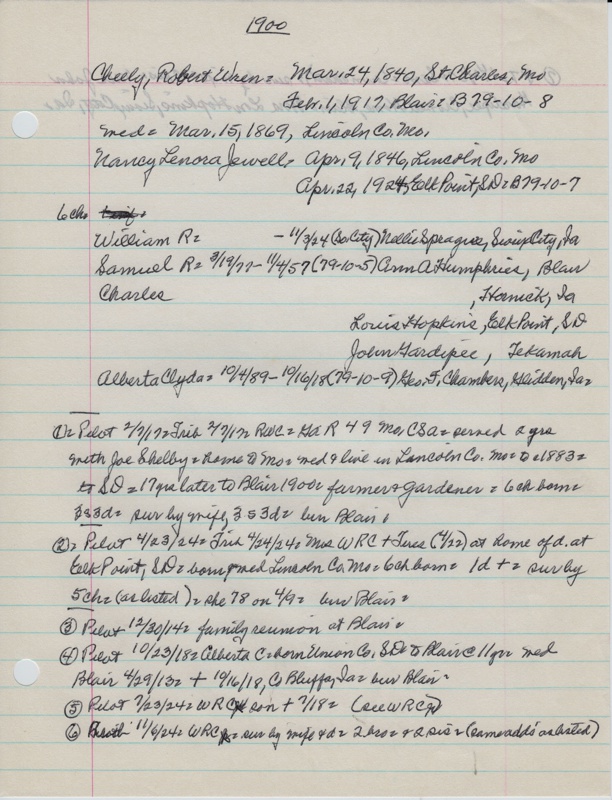 1900
Cheely, Robert Wren = Mar. 24, 1840, St. Charles, Mo
Feb. 1, 1917, Blair = B79-10-8
med = Mar. 15, 1869, Lincoln Co. Mo.
Nancy Lenora Jewell = Apr. 9, 1846, Lincoln Co. Mo
Apr. 22, 1924, Elk Point, SD = B79-10-7
6 chs
William R = - 11/3/24 (So City) Nellie Sprague, Sioux City, Ia
Samuel R = 3/19/77 - 11/4/57 (79-10-5) Ann A Humphries, Blair
Charles , Hornick, Ia
Louis Hopkins, Elk Point, SD
John Gardipee, Tekamah
Alberta Clyda = 10/4/89 - 10/16/18 (79-10-9) Geo. F. Chambers, Glidden, Ia =
①= Pilot 2/7/17 = Trib 2/7/17 = RWC = Ga R 49 Mo, CSa = served 2 yrs
with Joe Shelby = home to Mo = med & live in Lincoln Co. Mo = to = 1883 =
to SD = 17 yrs later to Blair 1900 = farmer & Gardener = 6 ch born =
3s3d = sur by wife, 3s3d = bur Blair.
②= Pilot 4/23/24 = Trib 4/24/24 = Mrs WRC + Tues (4/22) at home of d. at
Elk Point, SD = born & med Lincoln Co. Mo = 6 ch born = 1d + = sur by
5 ch = (as listed) = she 78 on 4/9 = bur Blair =
③ Pilot 12/30/14 = family reunion at Blair =
④ Pilot 10/23/18 = Alberta C = born Union Co. SD = to Blair @ 11 yr = med
Blair 4/29/13 = + 10/16/18, Co Bluffs, Ia = bur Blair =
⑤ Pilot 7/23/24 = WRC son + 7/18 = (see WRC)
⑥ 11/6/24 = WRC = sur by wife & d = 2 bro = & 2 sis = (same adds' as listed)